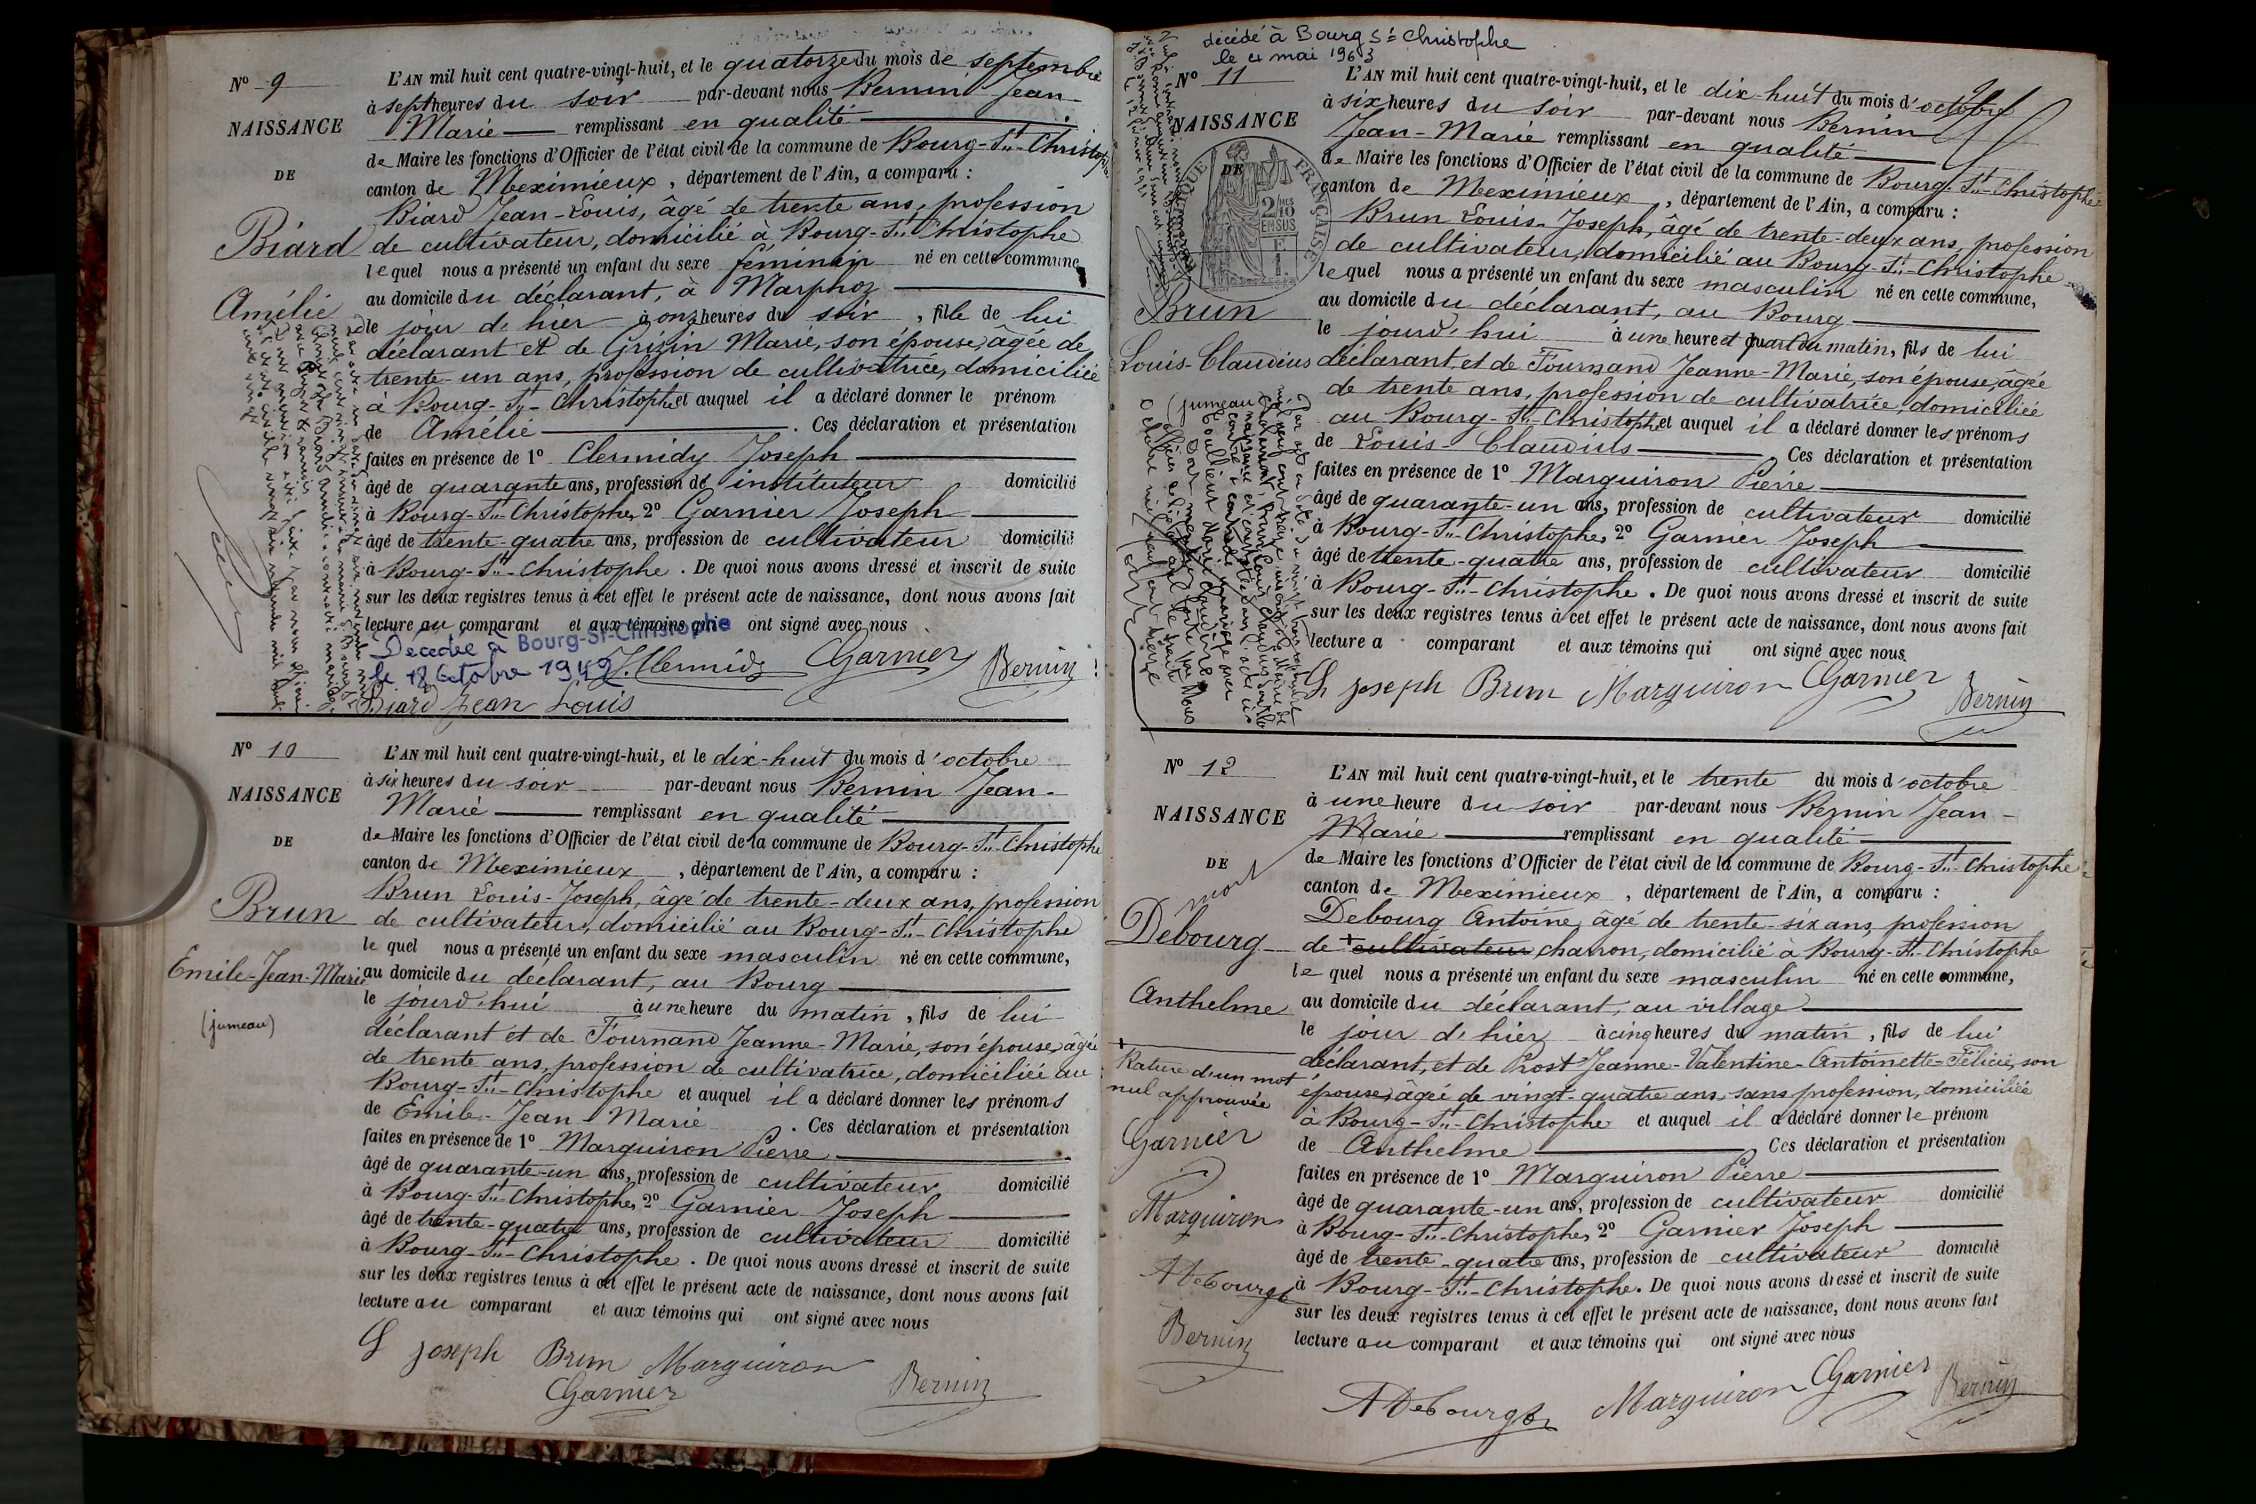 Nº 9
NAISSANCE
DE
Biard
Amélie
L'AN mil huit cent quatre-vingt-huit, et le quatorze du mois de septembre
à sept heures du soir par-devant nous Bernin Jean-
Marie remplissant en qualité
de Maire les fonctions d'Officier de l'état civil de la commune de Bourg-St-Christophe
canton de Meximieux, département de l'Ain, a comparu :
Biard Jean-Louis, âgé de trente ans, profession
de cultivateur, domicilié à Bourg-St-Christophe
lequel nous a présenté un enfant du sexe féminin né en cette commune
au domicile du déclarant, à Marphoz
le jour d'hier à onze heures du soir, fille de lui
déclarant et de Grizin Marie, son épouse, âgée de
trente-un ans, profession de cultivatrice, domiciliée
à Bourg-St-Christophe et auquel il a déclaré donner le prénom
de Amélie. Ces déclaration et présentation
faites en présence de 1º Clermidy Joseph
âgé de quarante ans, profession de instituteur domicilié
à Bourg-St-Christophe, 2º Garnier Joseph
âgé de trente-quatre ans, profession de cultivateur domicilié
à Bourg-St-Christophe. De quoi nous avons dressé et inscrit de suite
sur les deux registres tenus à cet effet le présent acte de naissance, dont nous avons fait
lecture au comparant et aux témoins qui ont signé avec nous
Décédée à Bourg-St-Christophe
le 18 Octobre 1942
J. Clermidy Garnier Bernin
Biard Jean Louis
Nº 10
NAISSANCE
DE
Brun
Emile-Jean-Marie
(jumeau)
L'AN mil huit cent quatre-vingt-huit, et le dix-huit du mois d'octobre
à six heures du soir par-devant nous Bernin Jean-
Marie remplissant en qualité
de Maire les fonctions d'Officier de l'état civil de la commune de Bourg-St-Christophe
canton de Meximieux, département de l'Ain, a comparu :
Brun Louis-Joseph, âgé de trente-deux ans, profession
de cultivateur, domicilié au Bourg-St-Christophe
lequel nous a présenté un enfant du sexe masculin né en cette commune,
au domicile du déclarant, au Bourg
le jourd'hui à une heure du matin, fils de lui
déclarant et de Fournand Jeanne-Marie, son épouse, âgée
de trente ans, profession de cultivatrice, domiciliée au
Bourg-St-Christophe et auquel il a déclaré donner les prénoms
de Emile-Jean-Marie. Ces déclaration et présentation
faites en présence de 1º Marguiron Pierre
âgé de quarante-un ans, profession de cultivateur domicilié
à Bourg-St-Christophe, 2º Garnier Joseph
âgé de trente-quatre ans, profession de cultivateur domicilié
à Bourg-St-Christophe. De quoi nous avons dressé et inscrit de suite
sur les deux registres tenus à cet effet le présent acte de naissance, dont nous avons fait
lecture au comparant et aux témoins qui ont signé avec nous
L Joseph Brun Marguiron
Garnier Bernin
décédé à Bourg St Christophe
le 4 mai 1963
Nº 11
NAISSANCE
DE
FRANÇAISE
2/10
EN SUS
Brun
Louis-Claudius
(jumeau)
L'AN mil huit cent quatre-vingt-huit, et le dix-huit du mois d'octobre
à six heures du soir par-devant nous Bernin
Jean-Marie remplissant en qualité
de Maire les fonctions d'Officier de l'état civil de la commune de Bourg-St-Christophe
canton de Meximieux, département de l'Ain, a comparu :
Brun Louis-Joseph, âgé de trente-deux ans, profession
de cultivateur, domicilié au Bourg-St-Christophe
lequel nous a présenté un enfant du sexe masculin né en cette commune,
au domicile du déclarant, au Bourg
le jourd'hui à une heure et quart du matin, fils de lui
déclarant, et de Fournand Jeanne-Marie, son épouse, âgée
de trente ans, profession de cultivatrice, domiciliée
au Bourg-St-Christophe et auquel il a déclaré donner les prénoms
de Louis-Claudius Ces déclaration et présentation
faites en présence de 1º Marguiron Pierre
âgé de quarante-un ans, profession de cultivateur domicilié
à Bourg-St-Christophe, 2º Garnier Joseph
âgé de trente-quatre ans, profession de cultivateur domicilié
à Bourg-St-Christophe. De quoi nous avons dressé et inscrit de suite
sur les deux registres tenus à cet effet le présent acte de naissance, dont nous avons fait
lecture a comparant et aux témoins qui ont signé avec nous
L Joseph Brun Marguiron Garnier Bernin
Nº 12
NAISSANCE
DE
mort
Debourg
Anthelme
Rature d'un mot
nul approuvée
Garnier
Marguiron
A Debourg
Bernin
L'AN mil huit cent quatre-vingt-huit, et le trente du mois d'octobre
à une heure du soir par-devant nous Bernin Jean-
Marie remplissant en qualité
de Maire les fonctions d'Officier de l'état civil de la commune de Bourg-St-Christophe
canton de Meximieux, département de l'Ain, a comparu :
Debourg Antoine, âgé de trente-six ans, profession
de cultivateur charron, domicilié à Bourg-St-Christophe
lequel nous a présenté un enfant du sexe masculin né en cette commune,
au domicile du déclarant, au village
le jour d'hier à cinq heures du matin, fils de lui
déclarant, et de Prost Jeanne-Valentine-Antoinette-Félicie, son
épouse, âgée de vingt-quatre ans, sans profession, domiciliée
à Bourg-St-Christophe et auquel il a déclaré donner le prénom
de Anthelme Ces déclaration et présentation
faites en présence de 1º Marguiron Pierre
âgé de quarante-un ans, profession de cultivateur domicilié
à Bourg-St-Christophe, 2º Garnier Joseph
âgé de trente-quatre ans, profession de cultivateur domicilié
à Bourg-St-Christophe. De quoi nous avons dressé et inscrit de suite
sur les deux registres tenus à cet effet le présent acte de naissance, dont nous avons fait
lecture au comparant et aux témoins qui ont signé avec nous
A Debourg Marguiron Garnier Bernin